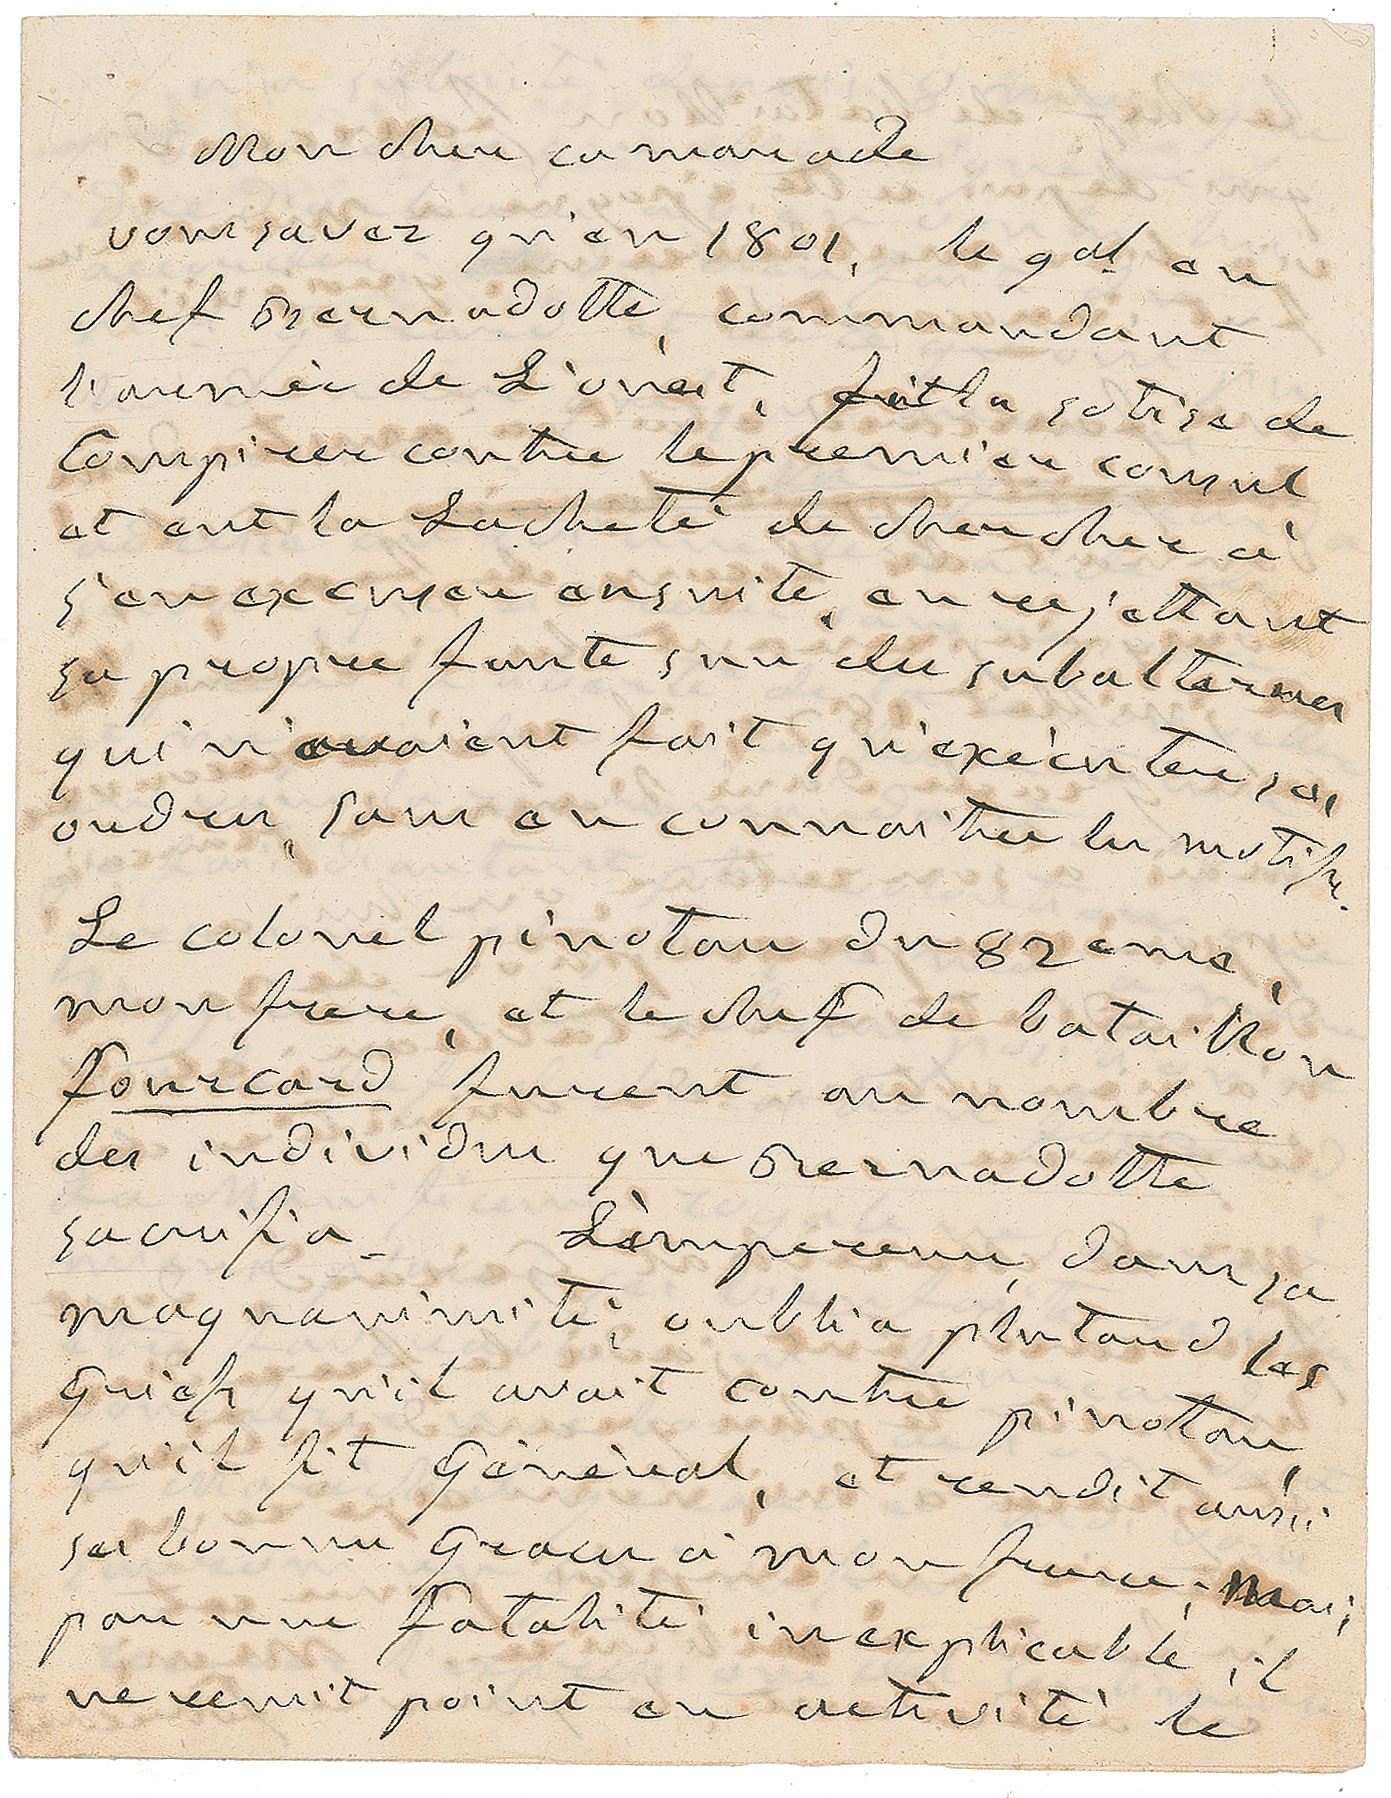 Mon cher camarade
vous savez qu'en 1801, le gal en
chef Bernadotte, commandant
l'armée de L'ouest, fit la sotise de
Conspirer contre le premier consul
et eut la Lacheté de chercher à
s'en excuser ensuite, en rejettant
sa propre faute sur des subalternes
qui n'avaient fait qu'exécuter ses
ordres, sans en connaitre les motifs.
Le colonel pinoteau du 82eme,
mon frere, et le chef de bataillon
fourcard furent au nombre
des individus que Bernadotte
sacrifia_ L'empereur, dans sa
magnanimité, oublia plutard les
Griefs qu'il avait contre pinotau,
qu'il fit Général, et rendit aussi
ses bonnes Graces à mon frere; Mais
par une fatalité inexplicable, il
ne remit point en activité le